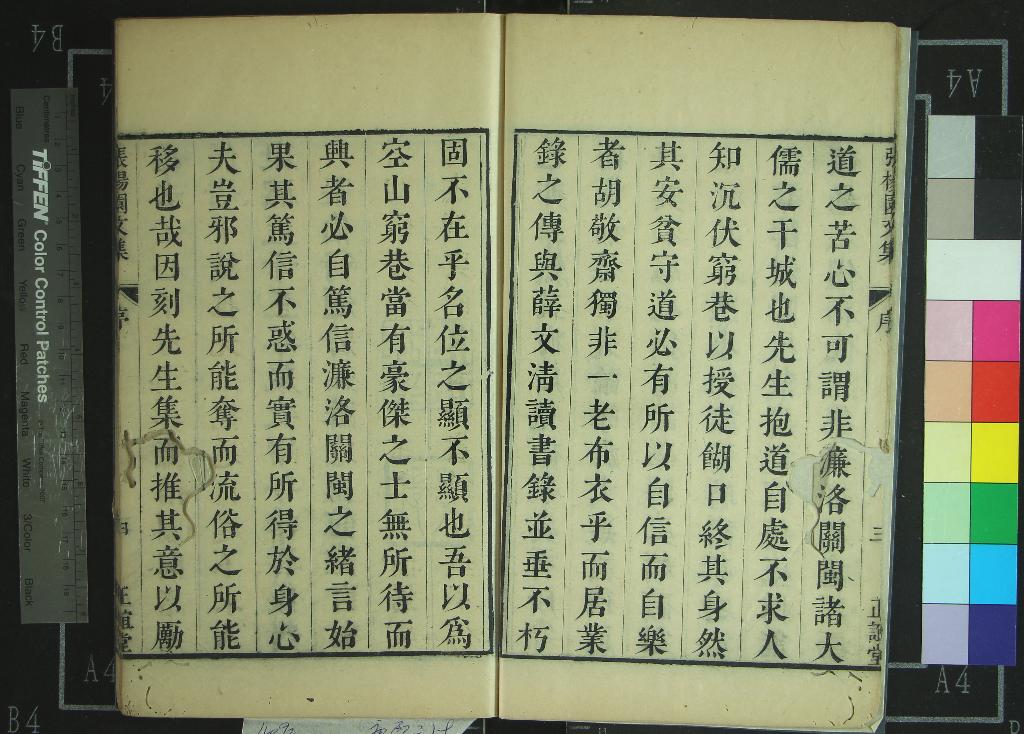 道之苦心不可謂非濂洛關閩諸大
儒之干城也先生抱道自處不求人
知沉伏窮巷以授徒餬口終其身然
其安貧守道必有所以自信而自樂
者胡敬齋獨非一老布衣乎而居業
錄之傳與薛文清讀書錄並垂不朽
固不在乎名位之顯不顯也吾以爲
空山窮巷當有豪傑之士無所待而
興者必自篤信濂洛關閩之緒言始
果其篤信不惑而實有所得於身心
夫豈邪說之所能奪而流俗之所能
移也哉因刻先生集而推其意以勵
張楊園文集
序
三
正誼堂
張楊園文集
序
四
正誼堂
TIFFEN Color Control Patches
Blue
Cyan
Green
Yellow
Red
Magenta
White
3/Color
Black
Centimetres
B4
A4
A4
A4
A4
B4